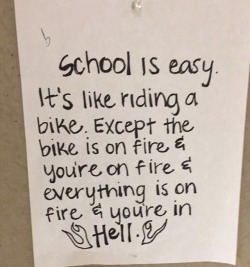 School is easy.
It's like riding a
bike. Except the
bike is on fire &
you're on fire &
everything is on
fire & you're in
Hell.